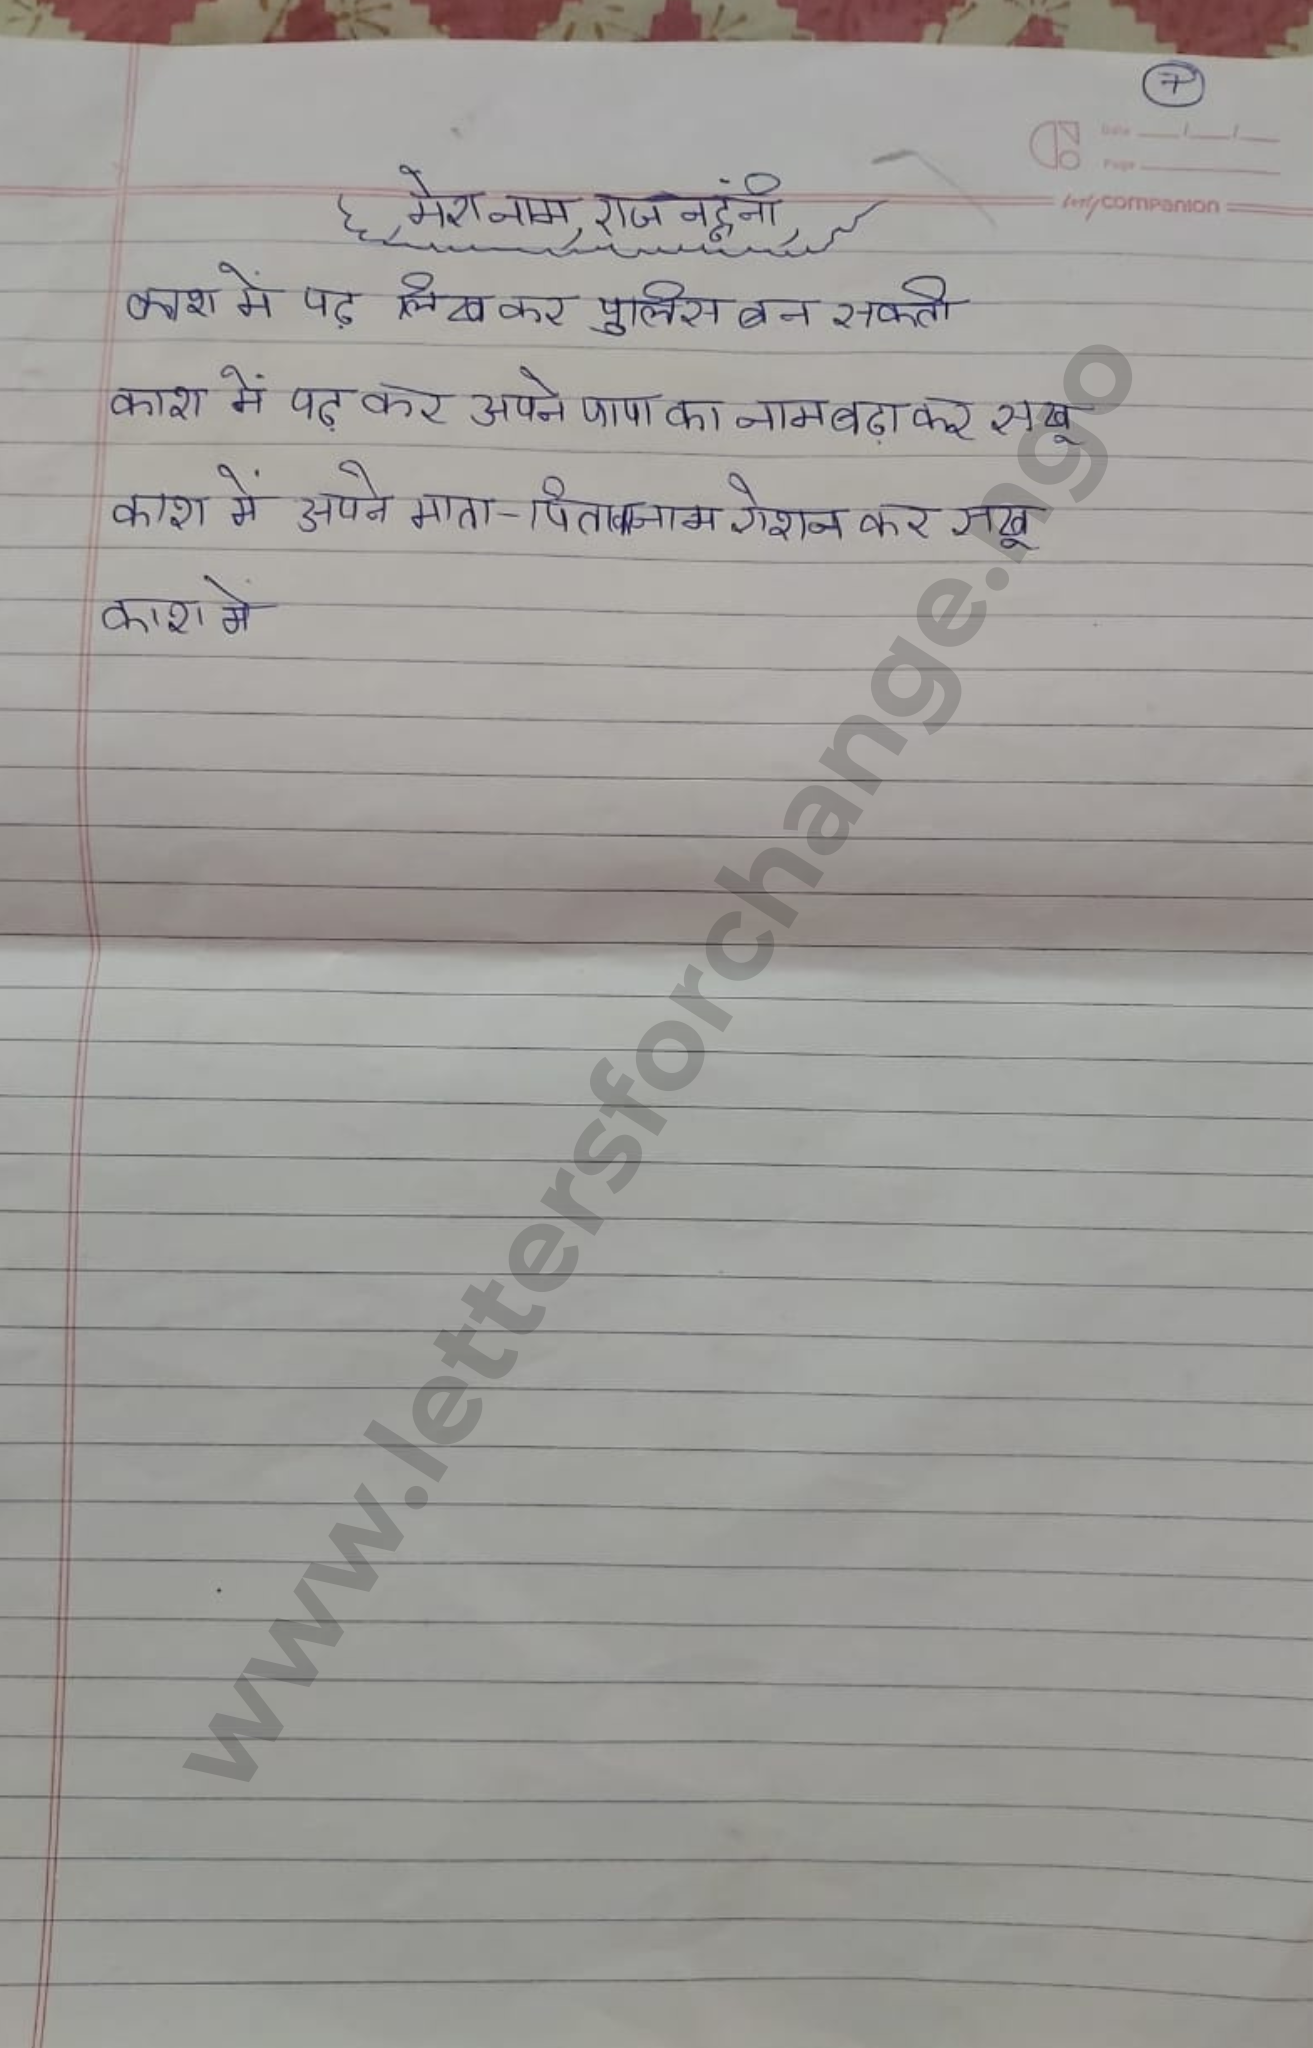 7
Date / /
Page
companion
मेरा नाम, राज नन्दंनी
काश में पढ़ लिख कर पुलिस बन सकती
काश में पढ़ कर अपने पापा का नाम बढ़ा कर सखू
काश में अपने माता-पिता का नाम रोशन कर सखू
काश में
www.lettersforchange.ngo